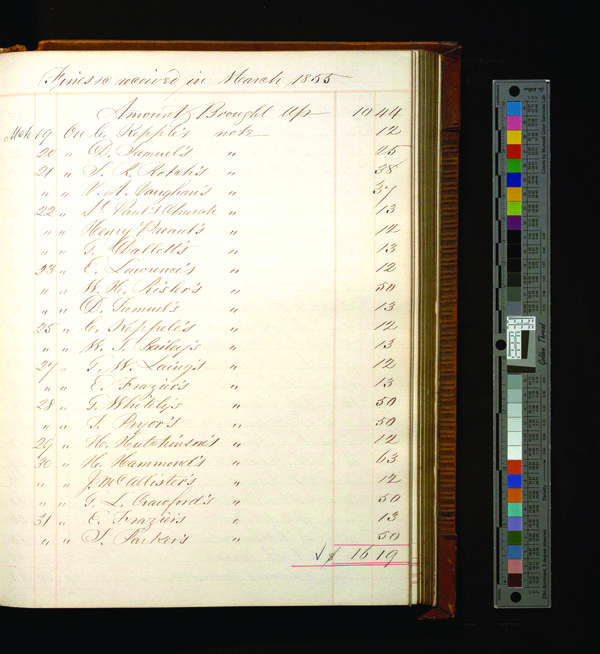 Fines &c received in March 1855
Amount Brought Up 10 44
Mch 19 On C. Kepple's note 12
20 " D. Samuel's " 25
21 " S. R. Kotah's " 38
" " V. A. Vaughan's " 37
22 " St Paul's Church " 13
" " Henry Bryant's " 12
" " G. Dallett's " 13
23 " E. Lawrence's " 12
" " W. H. Rister's " 50
" " D. Samuel's " 13
25 " C. Kepple's " 12
" " W. J. Bailey's " 13
27 " G. W. Laing's " 12
" " E. Frazier's " 13
28 " G. Whitely's " 50
" " S. Pryor's " 50
29 " H. Hutchinson's " 12
30 " H. Hammond's " 63
" " J. McCallister's " 12
" " G. L. Crawford's " 50
31 " E. Frazier's " 13
" " S. Parker's " 50
√ $ 16 19
Golden Thread